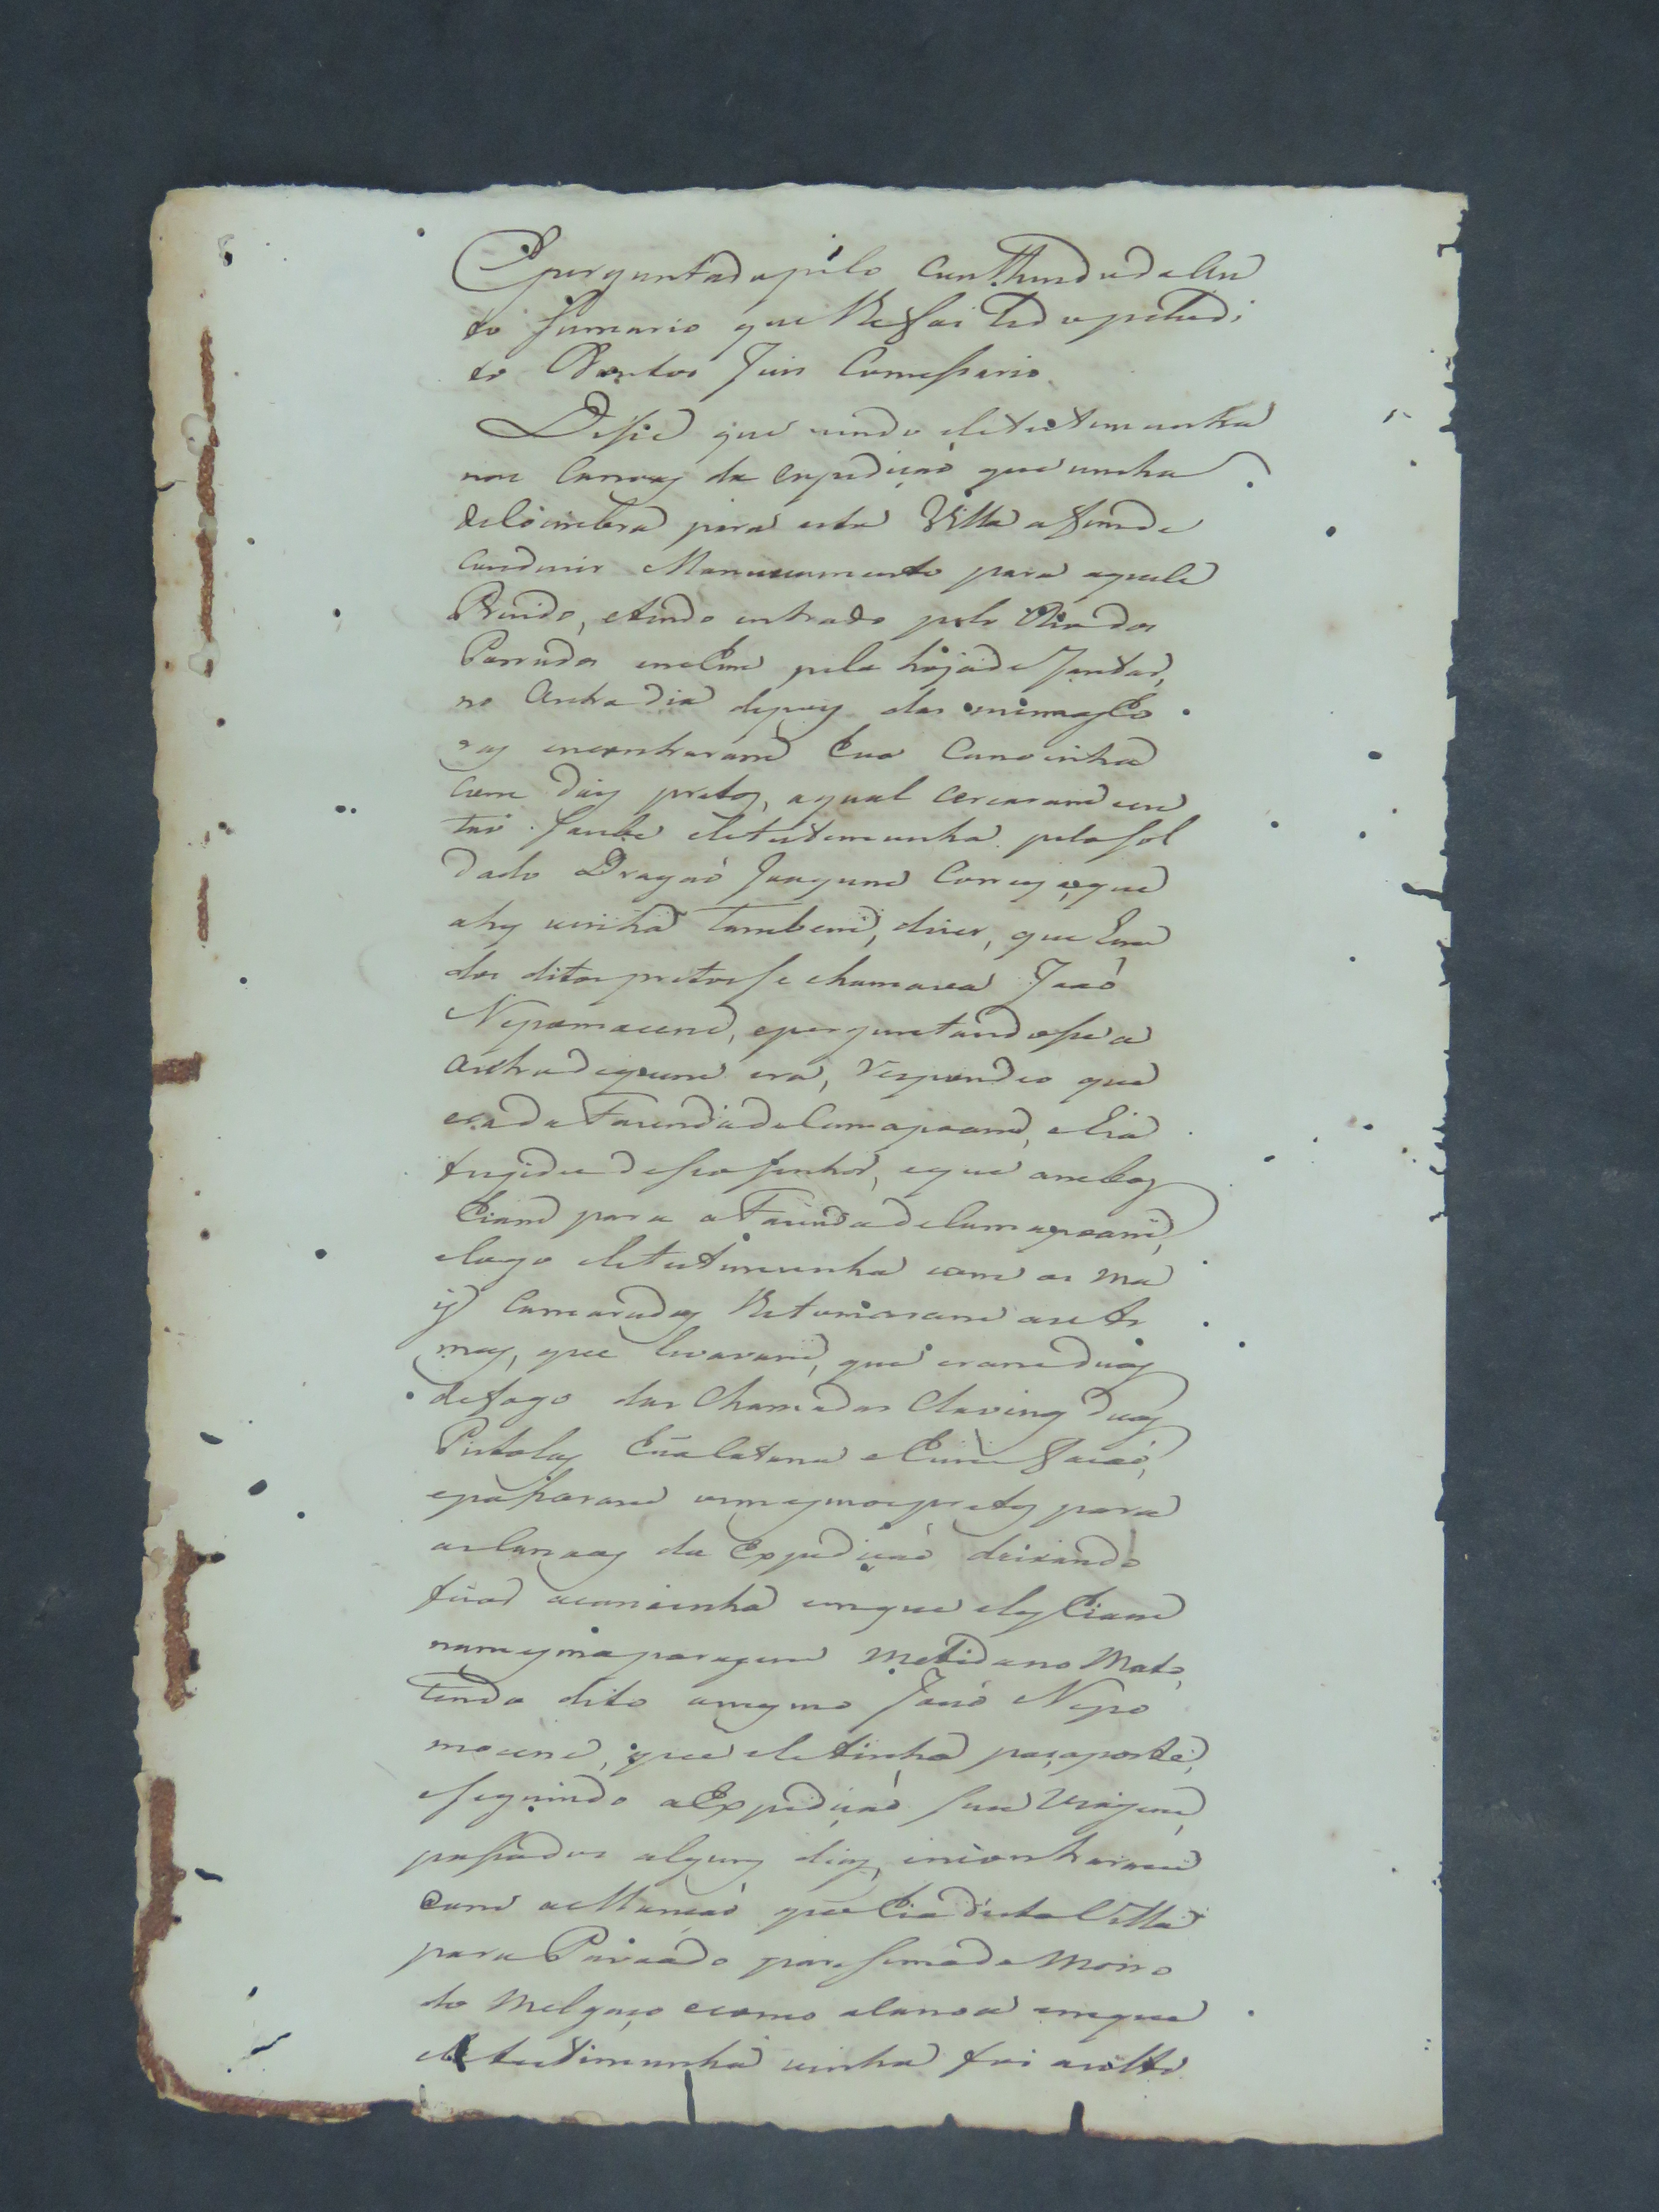 E perguntado pelo conthiudo de Au
to sumario que lhe foi lido pelo di
to Doutor Juis Comessario
Disse que vindo ele testemunha
nas Canoas da expedição que vinha
de Coimbra para esta Villa afim de
condusir Mantimento para aquele
Prezidio, e tendo entrado pelo Rio dos
Parrudos
no outro dia depois das mesmas o
ras encontraram hua Canoinha
com dois pretos, a qual cercaram en
tão soube ele testemunha pelo sol
dado Dragaõ Joaquim Correya, que
ahy vinha tambem, diser, que hum
dos ditos pretos se chamava Joaõ
Nepomaceno, e perguntandose a
outro de quem era, respondeo que
era da Fasenda de Camapoam, e hia
fugido de seo senhor, e que ambos
hiam para a Fasenda de Camapoam,
e logo ele testemunha com os ma
is Camaradas lhe tomaram as Ar
mas, que levavam, que eram duas
de fogo das chamadas Clavinas duas
Pistolas hũa Catana e hum facaõ,
e pasaram os mesmos pretos para
as Canoas da Expediçaõ deixando
ficar a canoinha em que eles hiam
na mesma paragem metida no Mato,
tendo dito o mesmo Joaõ Nepo
moceno, que ele tinha pasaporte,
e seguindo a Expediçaõ sua viagem,
passados alguns dias, encontraram
com a Monçaõ que hia desta Villa
para Povoado por sima do Morro
do Melgaço e como a canoa em que
ele testemunha vinha foi a volta